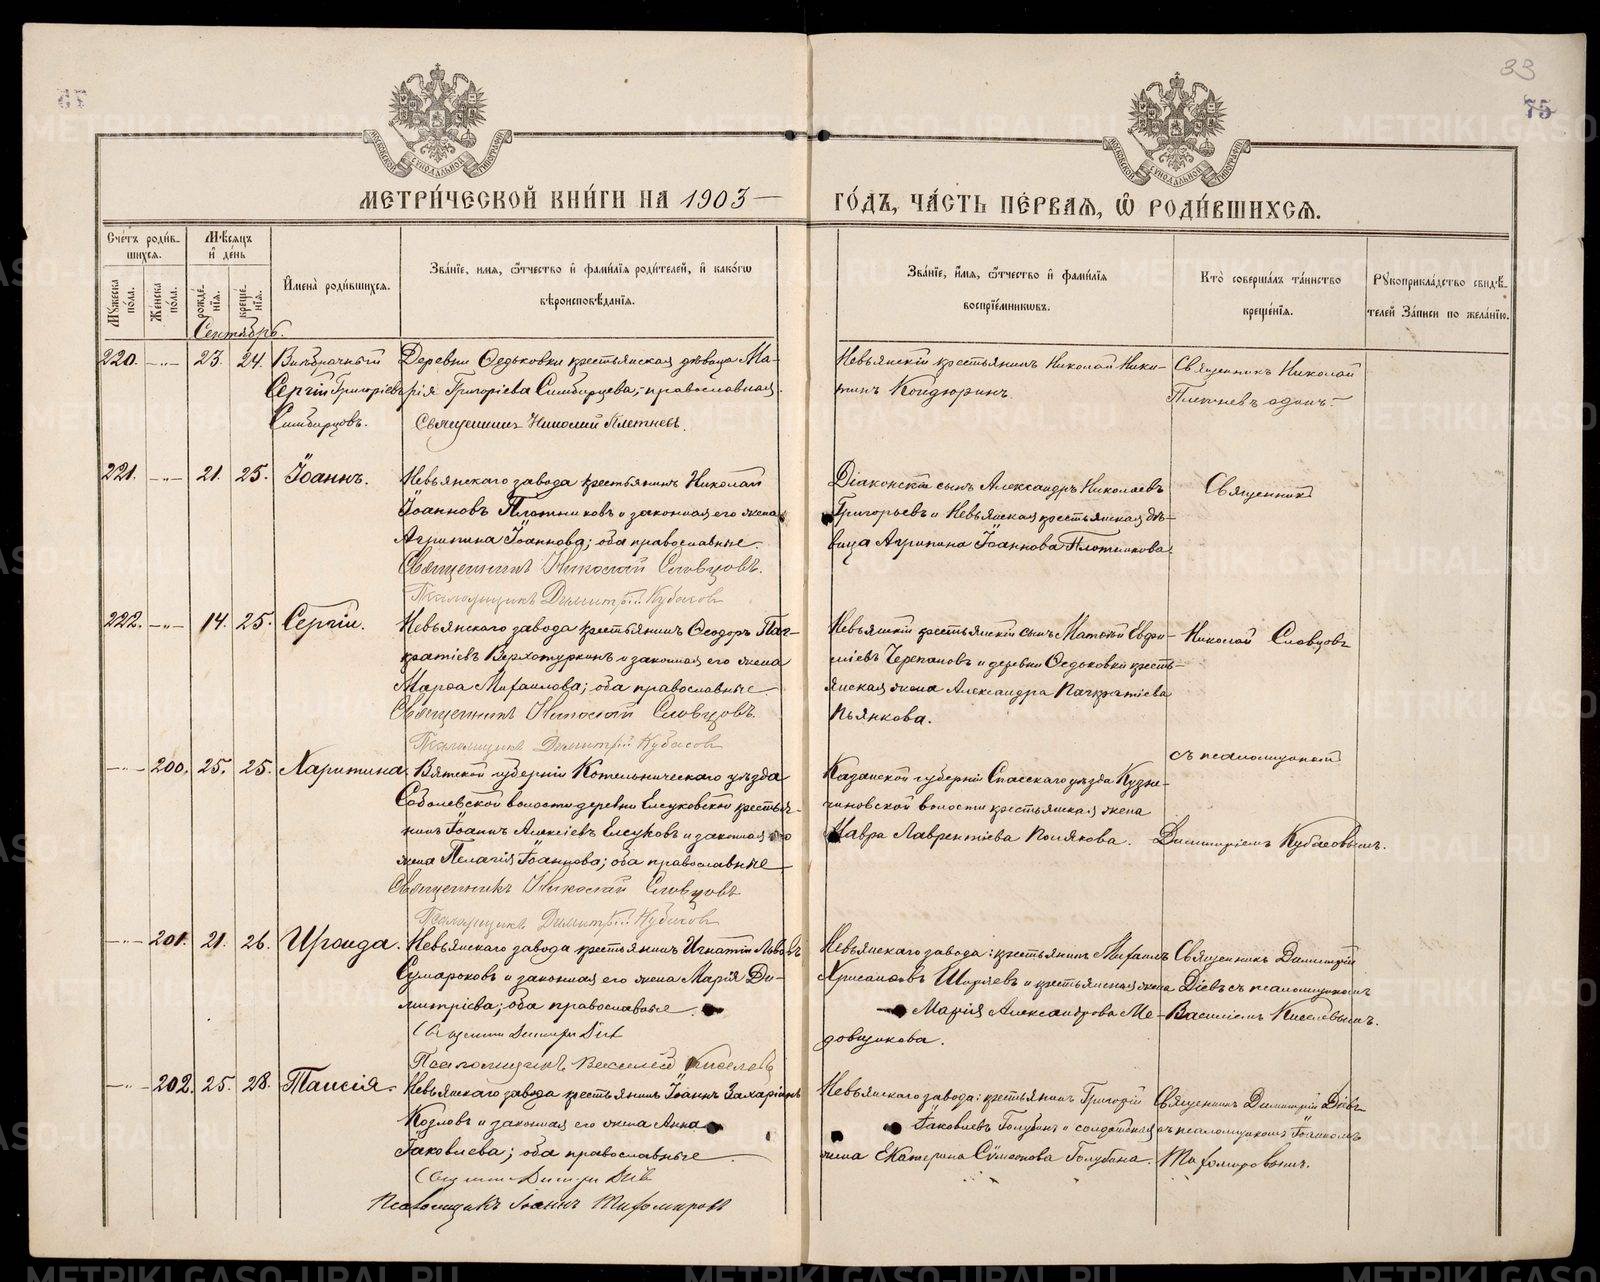 33
75
МОСКОВСКОЙ СѴНОДАЛЬНОЙ ТИПОГРАФІИ
МОСКОВСКОЙ СѴНОДАЛЬНОЙ ТИПОГРАФІИ
МЕТРИ́ЧЕСКОЙ КНИ́ГИ НА 1903 — ГО́ДЪ, ЧА́СТЬ ПЕ́РВАЯ, Ѽ РОДИ́ВШИХСЯ.
Сче́тъ роди́вшихся.
Мꙋжеска пола.
Же́нска пола.
Мѣсяцъ и҆ де́нь
рожде́нїя.
креще́нїя.
И҆мена̀ роди́вшихся.
Зва́нїе, имя, ѻ҆́тчество и҆ фами́лїѧ роди́телей, и҆ како́гѡ
вѣроисповѣ́данїя.
Зва́нїе, и҆́мя, ѻ҆́тчество и҆ фами́лїѧ
воспрїе́мникѡвъ.
Кто̀ соверша́лъ та́инство
креще́нїя.
Рꙋкоприкла́дство свидѣ́-
телей За́писи по жела́нїю.
Сентябрь.
220. —"— 23. 24. Внебрачный
Сергій Григоріевъ
Симбирцовъ.
Деревни Ѳедьковки крестьянская дѣвица Ма-
рія Григоріева Симбирцева; православная.
Священникъ Николай Плетневъ.
Невьянскій крестьянинъ Николай Ники-
тинъ Кондюринъ.
Священникъ Николай
Плетневъ одинъ.
221. —"— 21. 25. Іоаннъ.
Невьянскаго завода крестьянинъ Николай
Іоанновъ Плотниковъ и законная его жена
Агрипина Іоаннова; оба православные.
Священникъ Николай Словцовъ.
Псаломщикъ Димитрій Кубасов
Діаконскій сынъ Александръ Николаевъ
Григорьевъ и Невьянская крестьянская дѣ-
вица Агрипина Іоаннова Плотникова.
Священник
222. —"— 14. 25. Сергій.
Невьянскаго завода крестьянинъ Ѳеодоръ Пан-
кратіевъ Верхотуркинъ и законная его жена
Марѳа Михаилова; оба православные
Священникъ Николай Словцовъ.
Псаломщикъ Димитрій Кубасов
Невьянскій крестьянскій сынъ Матѳей Евфи-
міевъ Черепановъ и деревни Ѳедьковки кресть-
янская жена Александра Панкратіева
Пьянкова.
Николай Словцовъ
—"— 200. 25. 25. Харитина.
Вятской губерніи Котельническаго уѣзда
Соболевской волости деревни Елсуковской крестья-
нинъ Іоаннъ Алексіевъ Елсуковъ и законная его
жена Пелагія Іоаннова; оба православные
Священникъ Николай Словцовъ
Псаломщикъ Димитрій Кубасов
Казанской губерніи Спасскаго уѣзда Кузне-
чиховской волости крестьянская жена
Мавра Лаврентіева Полякова.
съ псаломщикомъ
Димитріемъ Кубасовымъ.
—"— 201. 21. 26. Ираида.
Невьянскаго завода крестьянинъ Игнатій Львовъ
Сумароковъ и законная его жена Марія Ди-
митріева; оба православные.
Священник Димитри Діев
Псаломщикъ Василий Киселевъ
Невьянскаго завода: крестьянинъ Михаилъ
Хрисанѳовъ Ширяевъ и крестьянская жена
Марія Александрова Ме-
довщикова.
Священникъ Димитрій
Діевъ съ псаломщикомъ
Василіемъ Киселевымъ.
—"— 202. 25. 28. Таисія.
Невьянскаго завода крестьянинъ Іоаннъ Захаріинъ
Козловъ и законная его жена Анна
Іаковлева; оба православные.
Священник Димитри Діев
Псаломщикъ Іоаннъ Тихомиров
Невьянскаго завода: крестьянинъ Григорій
Іаковлевъ Голубинъ и солдатская
жена Екатерина Сѵмеонова Голубина.
Священникъ Димитрій Діевъ
съ псаломщикомъ Іоанномъ
Тихомировымъ.
METRIKI.GASO-URAL.RU